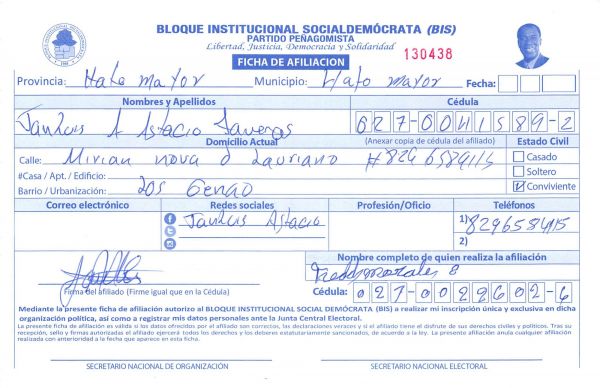 BLOQUE INSTITUCIONAL SOCIALDEMÓCRATA (BIS)
PARTIDO PEÑAGOMISTA
Libertad, Justicia, Democracia y Solidaridad
FICHA DE AFILIACION
130438
Provincia: Hato mayor Municipio: Hato mayor Fecha:
Nombres y Apellidos Cédula
Janluis A Astacio Taveras 027-0041589-2
Domicilio Actual (Anexar copia de cédula del afiliado) Estado Civil
Calle: Mirian nova d Lauriano #829 6584115 Casado
#Casa / Apt. / Edificio: Soltero
Barrio / Urbanización: Los Genao Conviviente
Correo electrónico Redes sociales Profesión/Oficio Teléfonos
Janluis Astacio 1) 8296584115
2)
Nombre completo de quien realiza la afiliación
Freddy morales B
Firma del afiliado (Firme igual que en la Cédula) Cédula: 027-0029602-6
Mediante la presente ficha de afiliación autorizo al BLOQUE INSTITUCIONAL SOCIAL DEMÓCRATA (BIS) a realizar mi inscripción única y exclusiva en dicha
organización política, así como a registrar mis datos personales ante la Junta Central Electoral.
La presente ficha de afiliación es válida si los datos ofrecidos por el afiliado son correctos, las declaraciones veraces y si el afiliado tiene el disfrute de sus derechos civiles y políticos. Tras su
recepción, sello y firmas autorizadas el afiliado ejercerá todos los derechos y los deberes estatutariamente sancionados, de acuerdo a la ley. La presente afiliación anula cualquier afiliación
realizada con anterioridad a la fecha que aparece en esta ficha.
SECRETARIO NACIONAL DE ORGANIZACIÓN SECRETARIO NACIONAL ELECTORAL